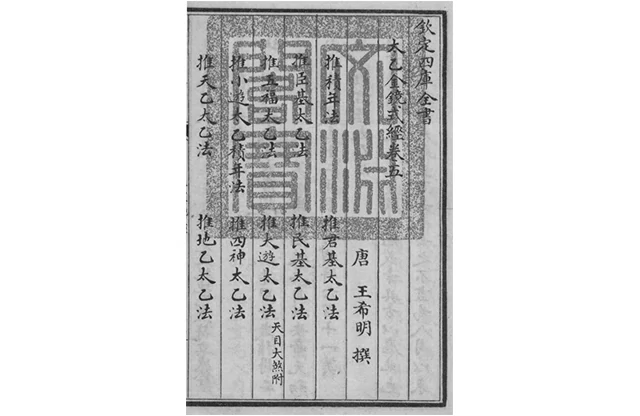 欽定四庫全書
太乙金鏡式經卷五
唐 王希明 撰
推積年法 推君基太乙法
推臣基太乙法 推民基太乙法
推五福太乙法 推大遊太乙法 天目大煞附
推小遊太乙積年法 推四神太乙法
推天乙太乙法 推地乙太乙法
文淵閣寶